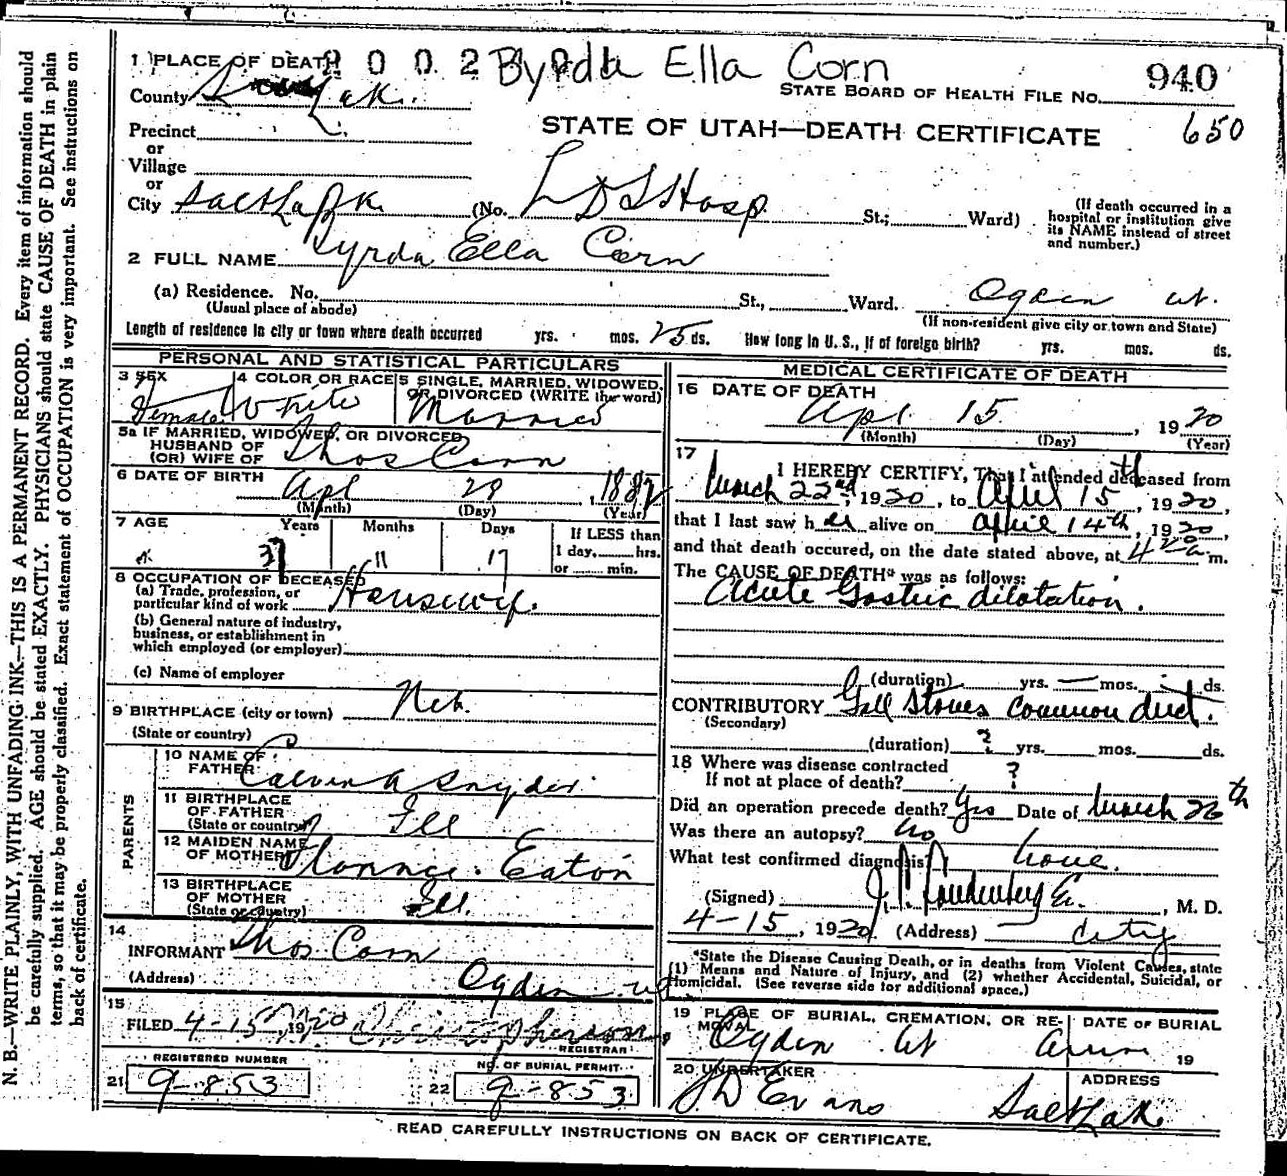 N. B.—WRITE PLAINLY, WITH UNFADING INK—THIS IS A PERMANENT RECORD. Every item of information should
be carefully supplied. AGE should be stated EXACTLY. PHYSICIANS should state CAUSE OF DEATH in plain
terms, so that it may be properly classified. Exact statement of OCCUPATION is very important. See instructions on
back of certificate.
1 PLACE OF DEATH
2002 Byrda Ella Corn
940
STATE BOARD OF HEALTH FILE No.
County S. Lake
STATE OF UTAH—DEATH CERTIFICATE 650
Precinct
or
Village
or
City Salt Lake (No. L D S Hosp. St.; Ward)
(If death occurred in a
hospital or institution give
its NAME instead of street
and number.)
2 FULL NAME Byrda Ella Corn
(a) Residence. No. St., Ward. Ogden ut.
(Usual place of abode) (If non-resident give city or town and State)
Length of residence in city or town where death occurred yrs. mos. 25 ds. How long in U. S., if of foreign birth? yrs. mos. ds.
PERSONAL AND STATISTICAL PARTICULARS
3 SEX Female
4 COLOR OR RACE White
5 SINGLE, MARRIED, WIDOWED, OR DIVORCED (WRITE the word) Married
5a IF MARRIED, WIDOWED, OR DIVORCED
HUSBAND OF
(OR) WIFE OF Thos Corn
6 DATE OF BIRTH Apl 29, 1882
(Month) (Day) (Year)
7 AGE Years 37 Months 11 Days 17
If LESS than
1 day, hrs.
or min.
8 OCCUPATION OF DECEASED
(a) Trade, profession, or
particular kind of work Housewife.
(b) General nature of industry,
business, or establishment in
which employed (or employer)
(c) Name of employer
9 BIRTHPLACE (city or town) Neb.
(State or country)
PARENTS
10 NAME OF
FATHER Calvin A Snyder
11 BIRTHPLACE
OF FATHER
(State or country) Ill
12 MAIDEN NAME
OF MOTHER Florence Eaton
13 BIRTHPLACE
OF MOTHER
(State or country) Ill.
14
INFORMANT Thos Corn
(Address) Ogden ut
15
FILED 4-15, 1920
REGISTRAR
REGISTERED NUMBER
21 9-853
NO. OF BURIAL PERMIT
22 9-853
MEDICAL CERTIFICATE OF DEATH
16 DATE OF DEATH
Apl 15, 1920
(Month) (Day) (Year)
17
I HEREBY CERTIFY, That I attended deceased from
March 22nd, 1920, to April 15th, 1920,
that I last saw her alive on April 14th, 1920,
and that death occured, on the date stated above, at 4 a m.
The CAUSE OF DEATH* was as follows:
Acute Gastric dilatation.
(duration) yrs. — mos. ds.
CONTRIBUTORY Gall Stones common duct.
(Secondary)
(duration) ? yrs. mos. ds.
18 Where was disease contracted
If not at place of death? ?
Did an operation precede death? Yes Date of March 26th
Was there an autopsy? no
What test confirmed diagnosis? none.
(Signed) , M. D.
4-15, 1920 (Address) City
*State the Disease Causing Death, or in deaths from Violent Causes, state
(1) Means and Nature of Injury, and (2) whether Accidental, Suicidal, or
Homicidal. (See reverse side for additional space.)
19 PLACE OF BURIAL, CREMATION, OR REMOVAL
Ogden ut
DATE OF BURIAL
19
20 UNDERTAKER
J D Evans
ADDRESS
Salt Lake
READ CAREFULLY INSTRUCTIONS ON BACK OF CERTIFICATE.